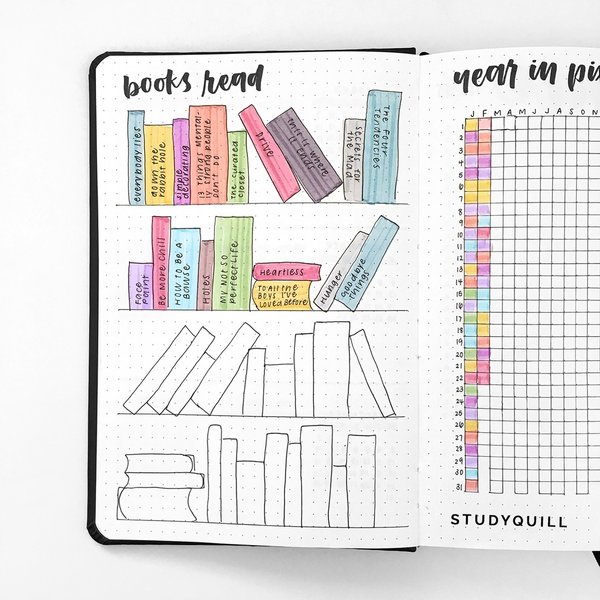 books read
everybody lies
down the
rabbit hole
simple
decorating
13 things mental-
ly strong people
don't do
the curated
closet
Drive
this is where
secrets for
the Mad
The Four
Tendencies
Face
Paint
Be more chill
How to be a
Bawse
Holes
My Not So
Perfect Life
Heartless
To All the
Boys I've
Loved Before
Hunger
Goodbye
Things
year in pix
J F M A M J J A S O N
1
2
3
4
5
6
7
8
9
10
11
12
13
14
15
16
17
18
19
20
21
22
23
24
25
26
27
28
29
30
31
STUDYQUILL